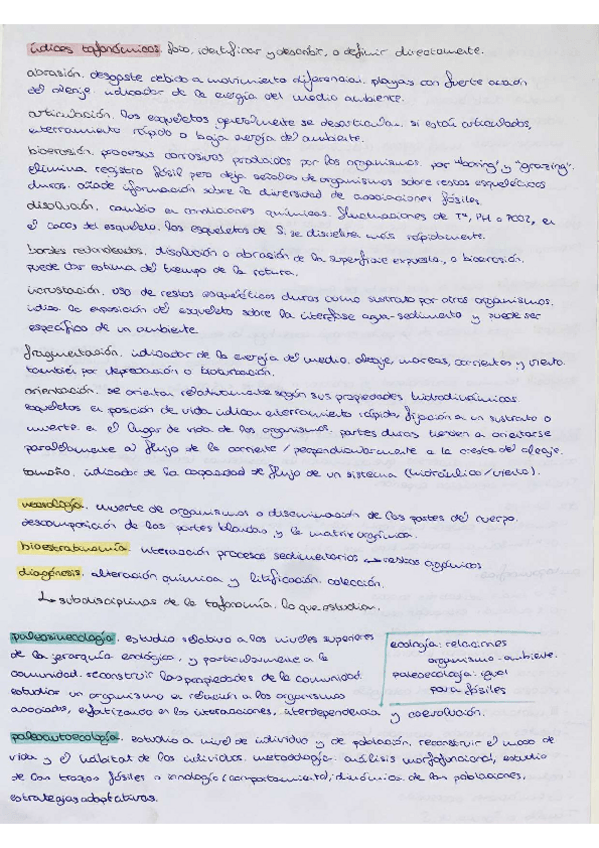 índices tafonómicos. foto, identificar y describir, o definir directamente.
abrasión. desgaste debido a movimiento diferencial. playas con fuerte acción
del oleaje. indicador de la energía del medio ambiente.
articulación. los esqueletos generalmente se desarticulan. si están articulados,
enterramiento rápido o baja energía del ambiente.
bioerosión. procesos corrosivos producidos por los organismos. por "boring" y "grazing".
elimina registro fósil pero deja señales de organismos sobre restos esqueléticos
duros. añade información sobre la diversidad de asociaciones fósiles.
disolución. cambio en condiciones químicas. fluctuaciones de Tª, PH o PCO2, en
el caso del esqueleto. los esqueletos de S. se disuelven más rápidamente.
bordes redondeados. disolución o abrasión de la superficie expuesta, o bioerosión.
puede dar estima del tiempo de la rotura.
incrustación. uso de restos esqueléticos duros como sustrato por otros organismos.
indica la exposición del esqueleto sobre la interfase agua-sedimento y puede ser
específico de un ambiente.
fragmentación. indicador de la energía del medio. oleaje, mareas, corrientes y viento.
también por depredación o bioturbación.
orientación. se orientan relativamente según sus propiedades hidrodinámicas.
esqueletos en posición de vida indican enterramiento rápido, fijación a un sustrato o
muerte en el lugar de vida de los organismos. partes duras tienden a orientarse
paralelamente al flujo de la corriente / perpendicularmente a la cresta del oleaje.
tamaño. indicador de la capacidad de flujo de un sistema (hidráulico/viento).
necrología. muerte de organismos o diseminación de las partes del cuerpo.
descomposición de las partes blandas y la matriz orgánica.
bioestratinomía. interacción procesos sedimentarios → restos orgánicos
diagénesis. alteración química y litificación. colección.
↳ subdisciplinas de la tafonomía. lo que estudian.
paleosinecología. estudio relativo a los niveles superiores
de la jerarquía ecológica, y particularmente a la
comunidad. reconstruir las propiedades de la comunidad.
estudiar un organismo en relación a los organismos
asociados, enfatizando en las interacciones, interdependencia y coevolución.
ecología: relaciones
organismo-ambiente.
paleoecología: igual
para fósiles
paleoautoecología. estudio a nivel de individuo y de población. reconstruir el modo de
vida y el hábitat de los individuos. metodología. análisis morfofuncional, estudio
de las trazas fósiles o icnología (comportamiento), dinámica de las poblaciones,
estrategias adaptativas.